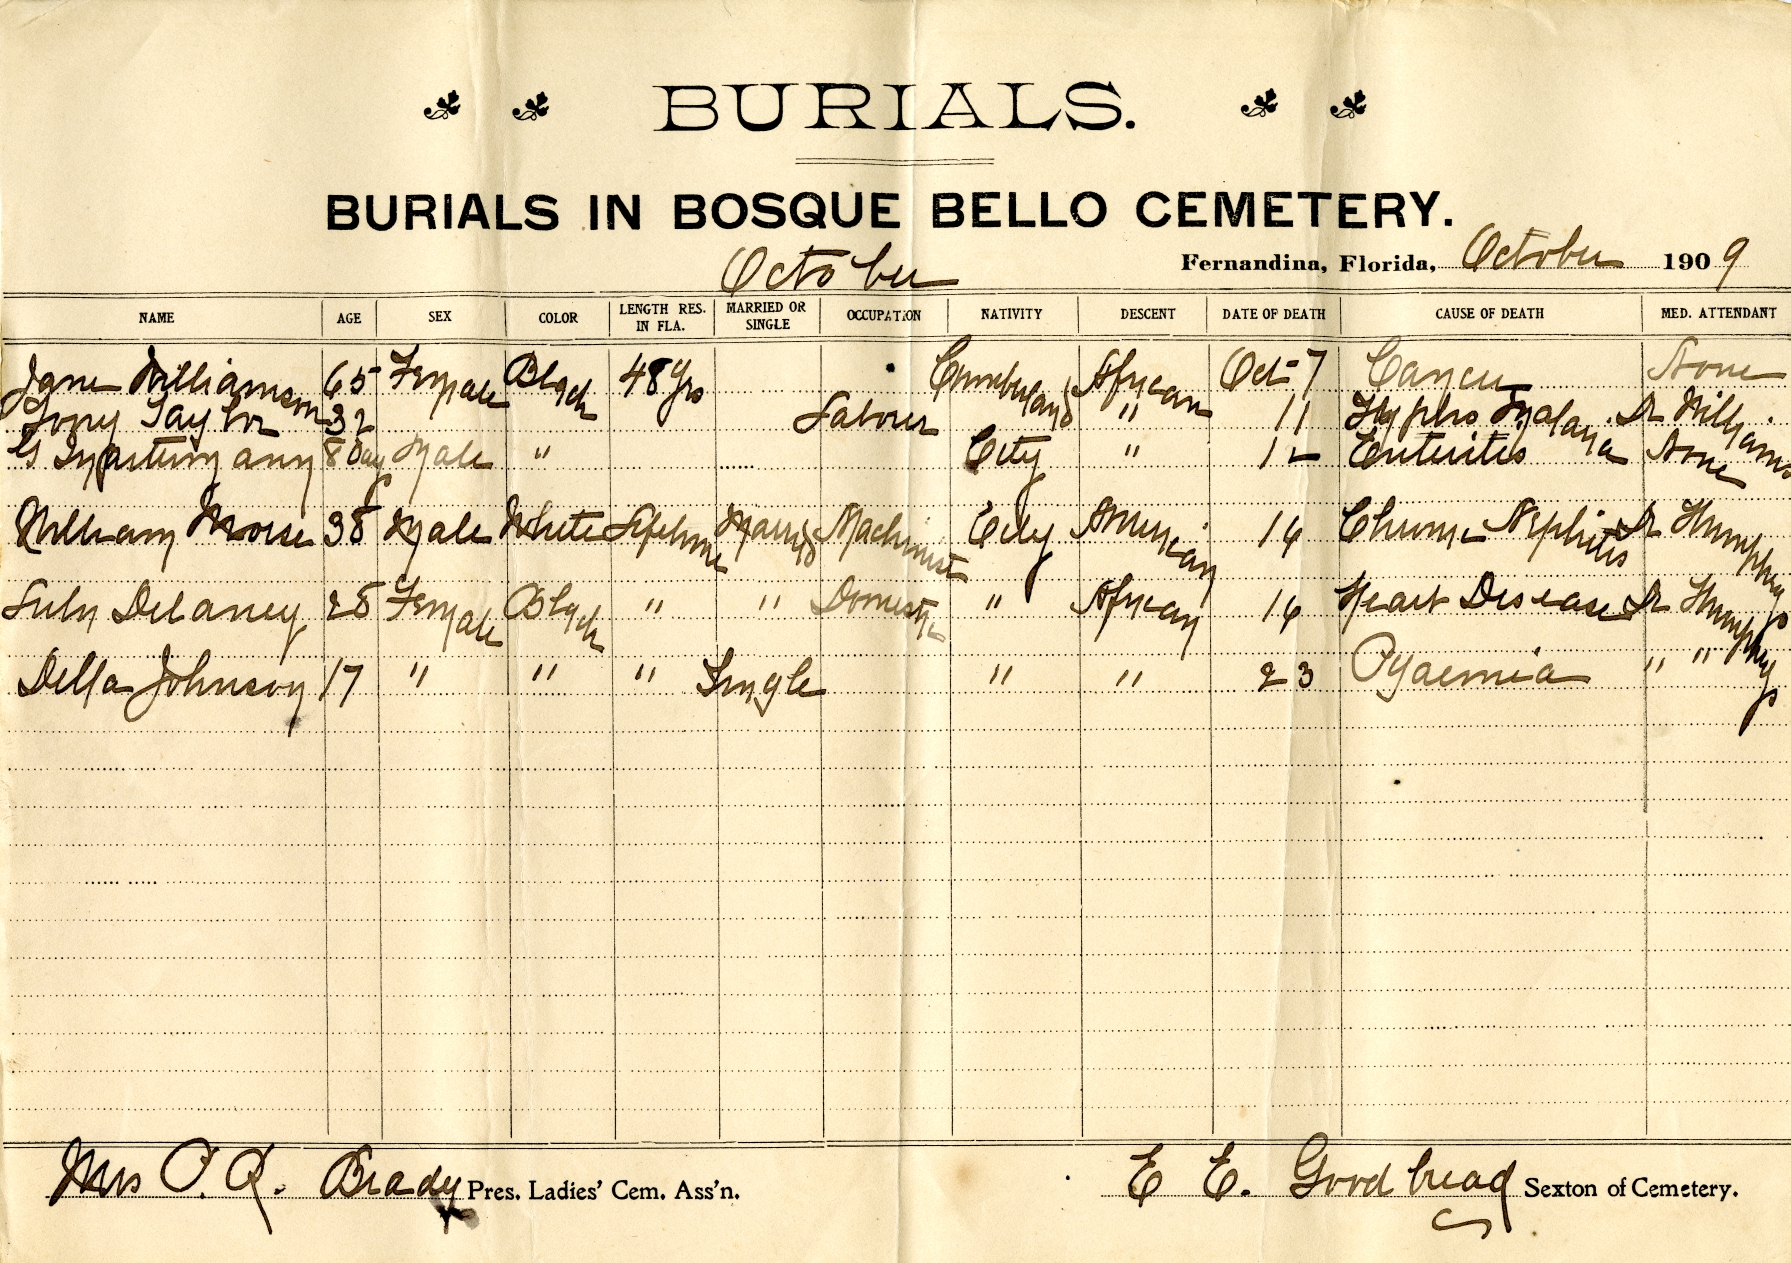 BURIALS.
BURIALS IN BOSQUE BELLO CEMETERY.
October Fernandina, Florida, October 1909
NAME AGE SEX COLOR LENGTH RES. IN FLA. MARRIED OR SINGLE OCCUPATION NATIVITY DESCENT DATE OF DEATH CAUSE OF DEATH MED. ATTENDANT
Jane Williamson 65 Female Black 48 yrs Cumberland African Oct 7 Cancer None
Tony Taylor 32 Laborer " 11 Malaria Dr Williams
8 Day Male " City " 12 Enteritis None
William Morse 38 Male White Lifetime Married Machinist City American 14 Chronic Nephritis Dr Humphreys
Delaney 28 Female Black " " Domestic " African 16 Heart Disease Dr Humphreys
Della Johnson 17 " " " Single " " 23 Pyaemia " "
Mrs Brady Pres. Ladies' Cem. Ass'n. E E. Goodbread Sexton of Cemetery.